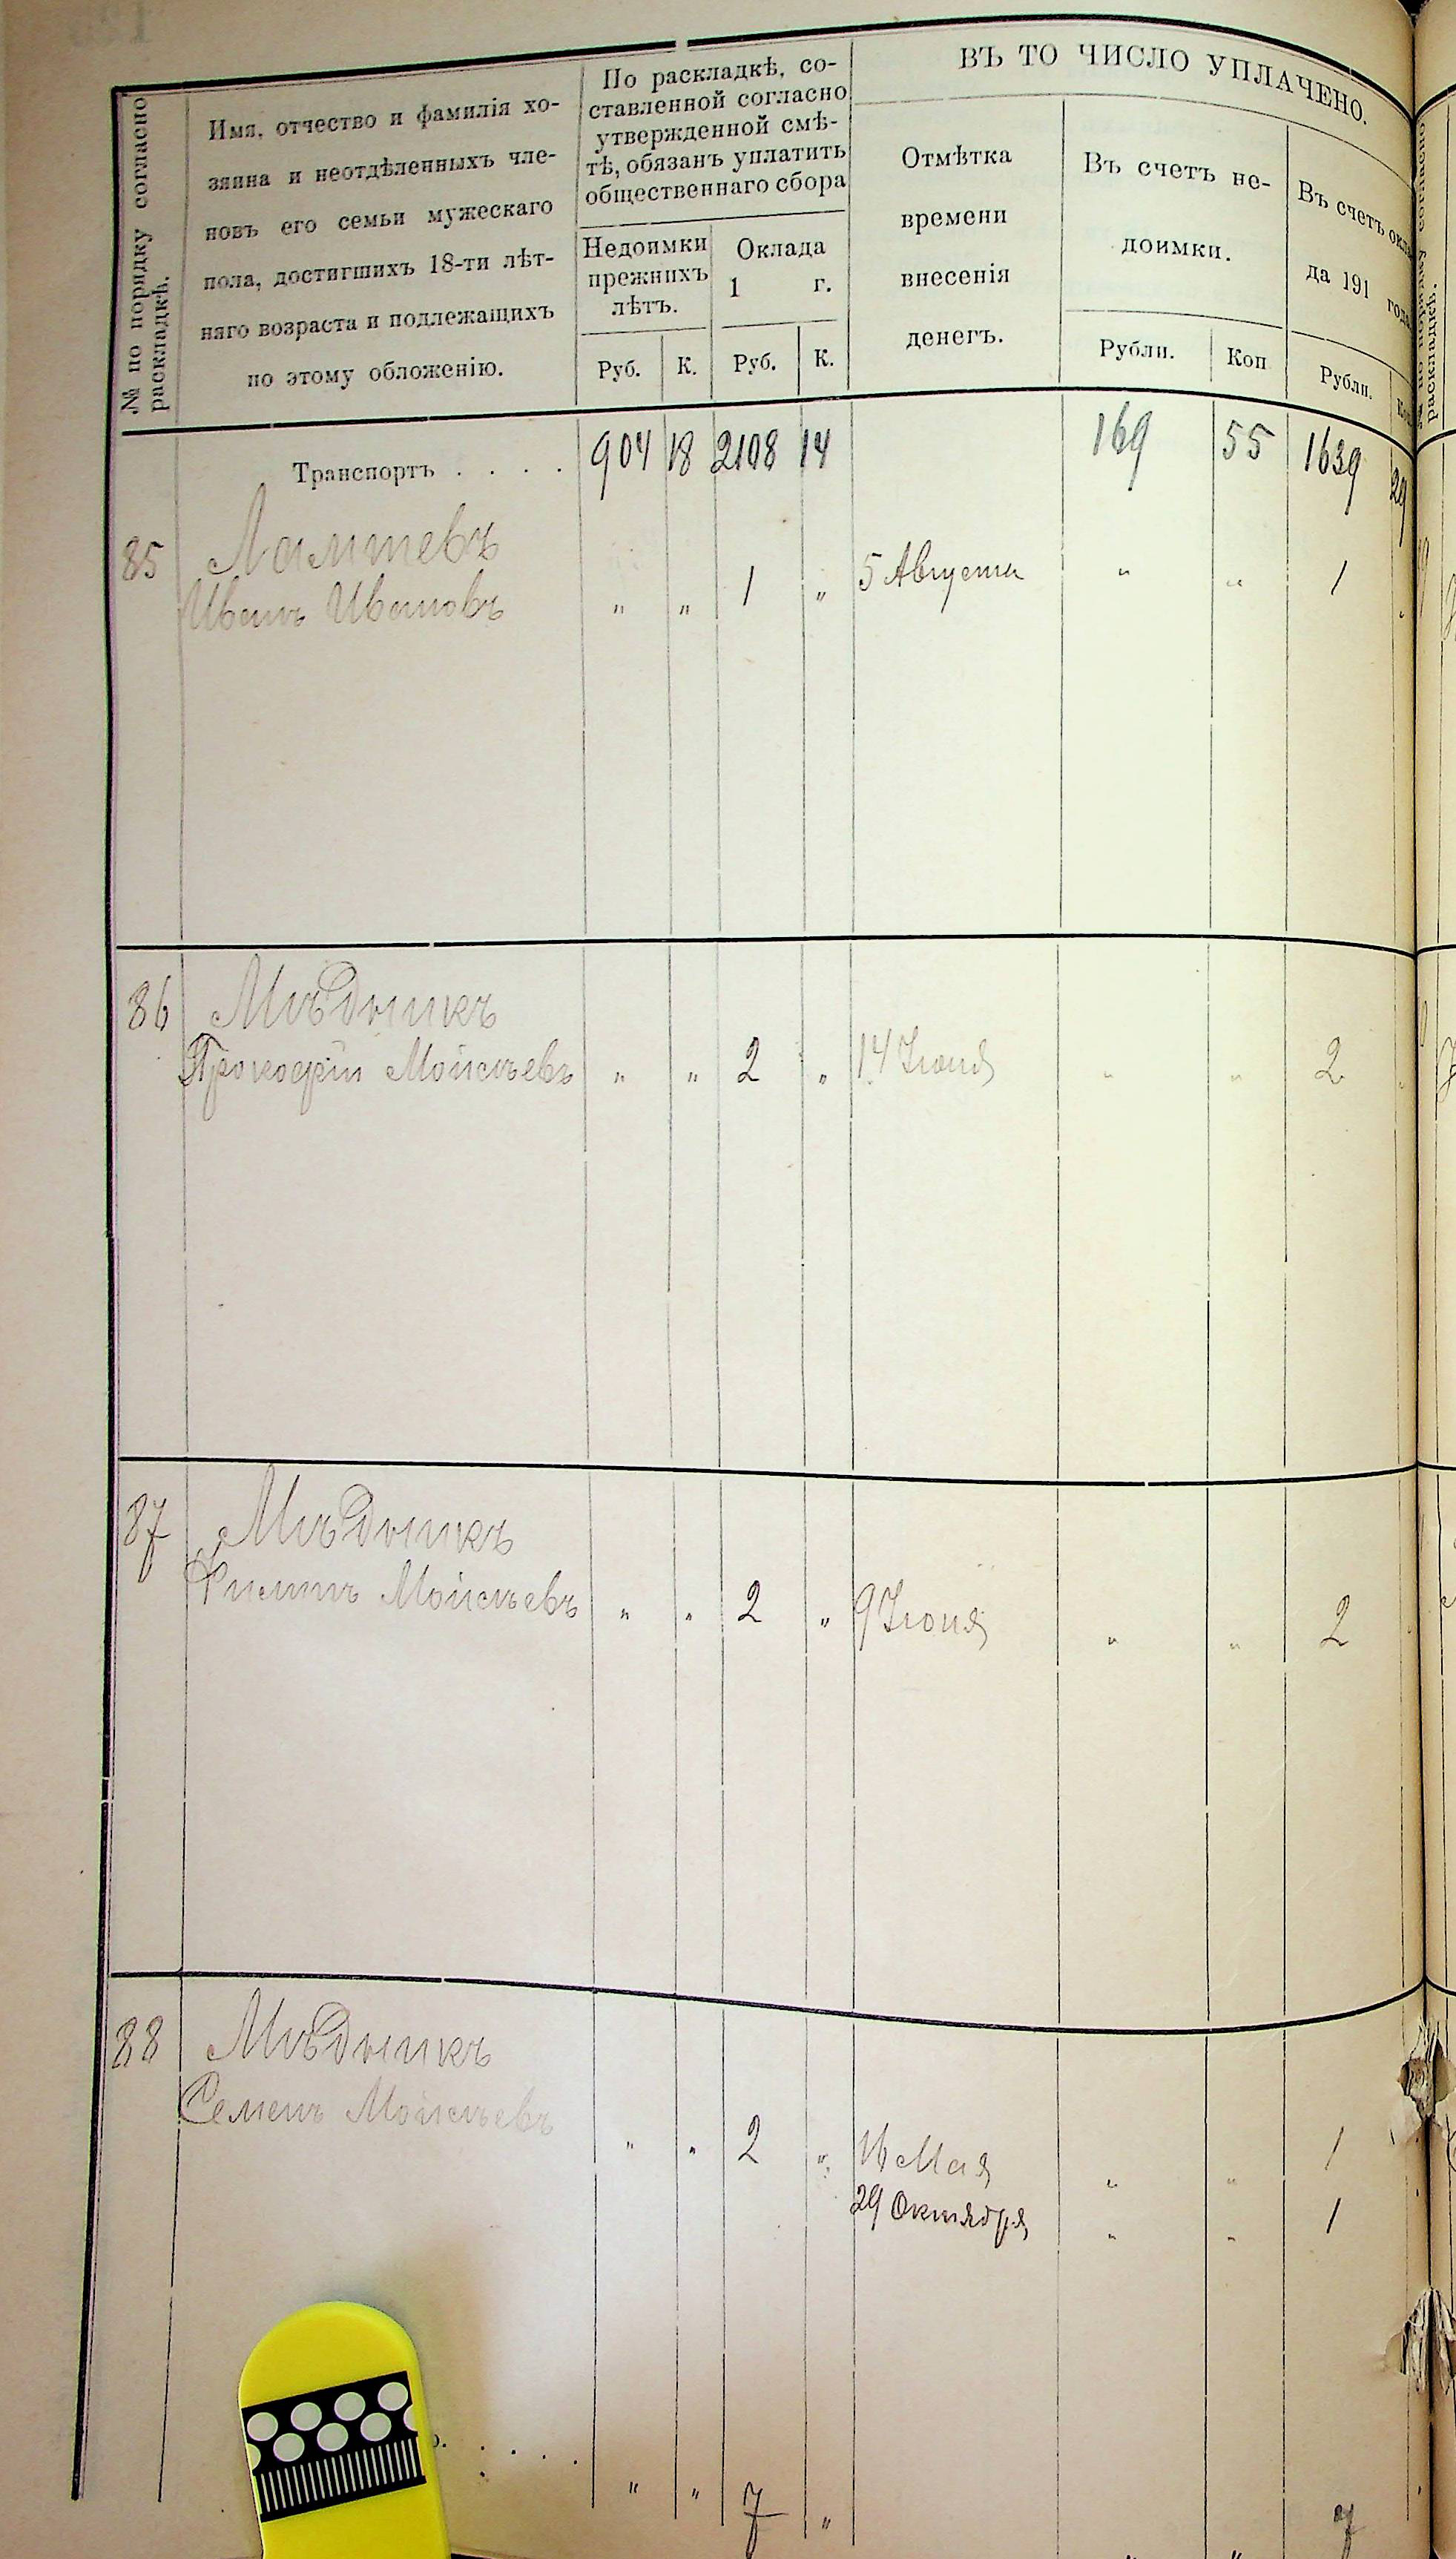 ВЪ ТО ЧИСЛО УПЛАЧЕНО.
№ по порядку согласно
раскладкѣ.
Имя, отчество и фамилія хо-
зяина и неотдѣленныхъ чле-
новъ его семьи мужескаго
пола, достигшихъ 18-ти лѣт-
няго возраста и подлежащихъ
по этому обложенію.
По раскладкѣ, со-
ставленной согласно
утвержденной смѣ-
тѣ, обязанъ уплатить
общественнаго сбора
Недоимки
прежнихъ
лѣтъ.
Оклада
1 г.
Руб. К. Руб. К.
Отмѣтка
времени
внесенія
денегъ.
Въ счетъ не-
доимки.
Рубли. Коп
Въ счетъ окла
да 191 года
Рубли.
Транспортъ . . . . 904 18 2108 14 169 55 1639 29
85
Иванъ Ивановъ " " 1 " 5 Августа " " 1 "
86 Мѣдникъ
Прокофій Моисѣевъ " " 2 " 14 Іюня " " 2
87 Мѣдникъ
Филипъ Моисѣевъ " " 2 " 9 Іюня " " 2
88 Мѣдникъ
Семенъ Моисѣевъ
" " 2 " 16 Мая " " 1
29 Октября " " 1
" " 7 " " " 7